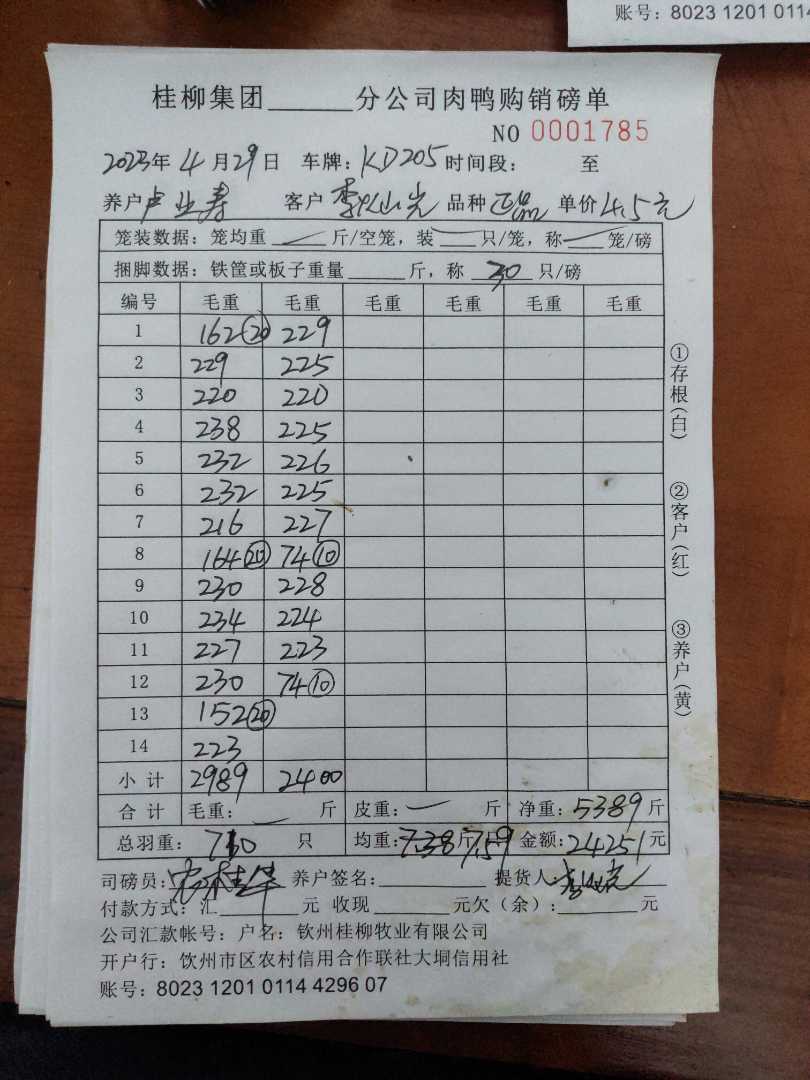 账号：8023 1201 0114
桂柳集团______分公司肉鸭购销磅单
NO 0001785
2023年 4月29日 车牌：KD205 时间段： 至
养户 卢业寿 客户 李 光 品种 正品 单价 4.5元
笼装数据：笼均重 斤/空笼，装 只/笼，称 笼/磅
捆脚数据：铁筐或板子重量______斤，称 30 只/磅
编号 毛重 毛重 毛重 毛重 毛重 毛重
1 162⑳ 229
2 229 225
3 220 220
4 238 225
5 232 226
6 232 225
7 216 227
8 164⑳ 74⑩
9 230 228
10 234 224
11 227 223
12 230 74⑩
13 152⑳
14 223
小计 2989 2400
合计 毛重： 斤 皮重： 斤 净重：5389斤
总羽重：710 只 均重：7.38斤 7.59 金额：24251元
司磅员： 养户签名： 提货人
付款方式：汇______元 收现______元欠（余）：______元
公司汇款帐号：户名：钦州桂柳牧业有限公司
开户行：饮州市区农村信用合作联社大垌信用社
账号：8023 1201 0114 4296 07
①存根(白)
②客户(红)
③养户(黄)